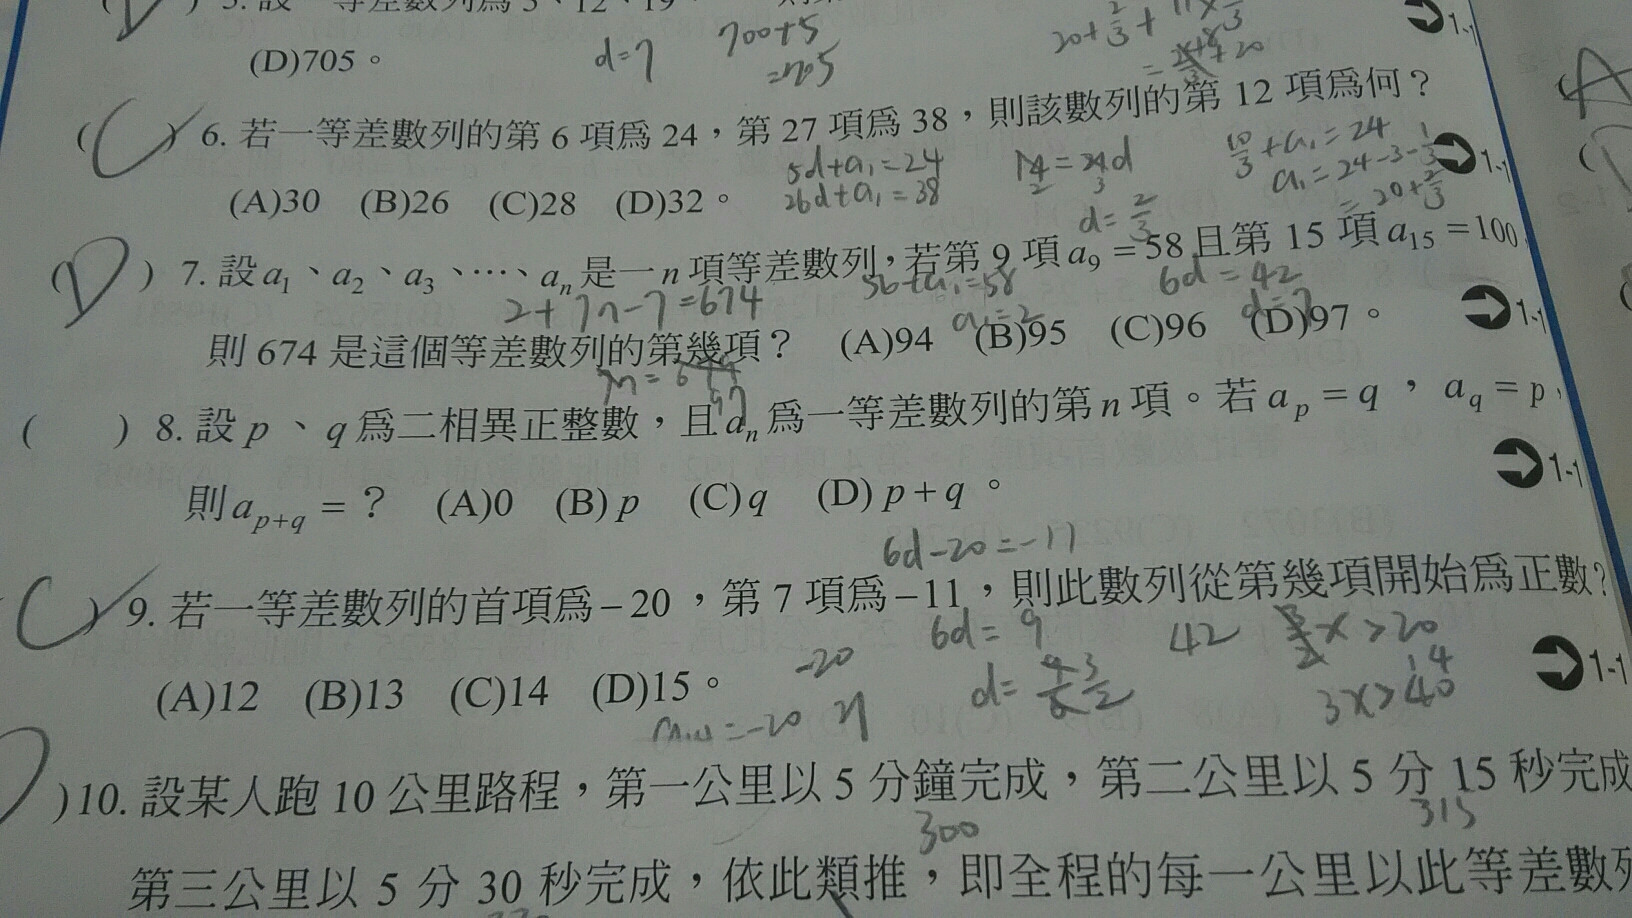 (D)705。
d=7
700+5
=705
( C ) 6. 若一等差數列的第 6 項為 24，第 27 項為 38，則該數列的第 12 項為何？
5d+a₁=24
26d+a₁=38
d=2/3
10/3+a₁=24
a₁=24-3-1/3
=20+2/3
(A)30 (B)26 (C)28 (D)32。
( D ) 7. 設 a₁、a₂、a₃、⋯、aₙ 是一 n 項等差數列，若第 9 項 a₉ = 58 且第 15 項 a₁₅ = 100，
2+7n-7=674
56+a₁=58
a₁=2
6d=42
d=7
則 674 是這個等差數列的第幾項？ (A)94 (B)95 (C)96 (D)97。
( ) 8. 設 p、q 為二相異正整數，且 aₙ 為一等差數列的第 n 項。若 aₚ = q，a_q = p，
則 a_{p+q} = ？ (A)0 (B) p (C) q (D) p + q。
6d-20=-11
( C ) 9. 若一等差數列的首項為 – 20，第 7 項為 – 11，則此數列從第幾項開始為正數？
6d=9
42
3x>40
14
-20
(A)12 (B)13 (C)14 (D)15。
1-1
)10. 設某人跑 10 公里路程，第一公里以 5 分鐘完成，第二公里以 5 分 15 秒完成
300
315
第三公里以 5 分 30 秒完成，依此類推，即全程的每一公里以此等差數列